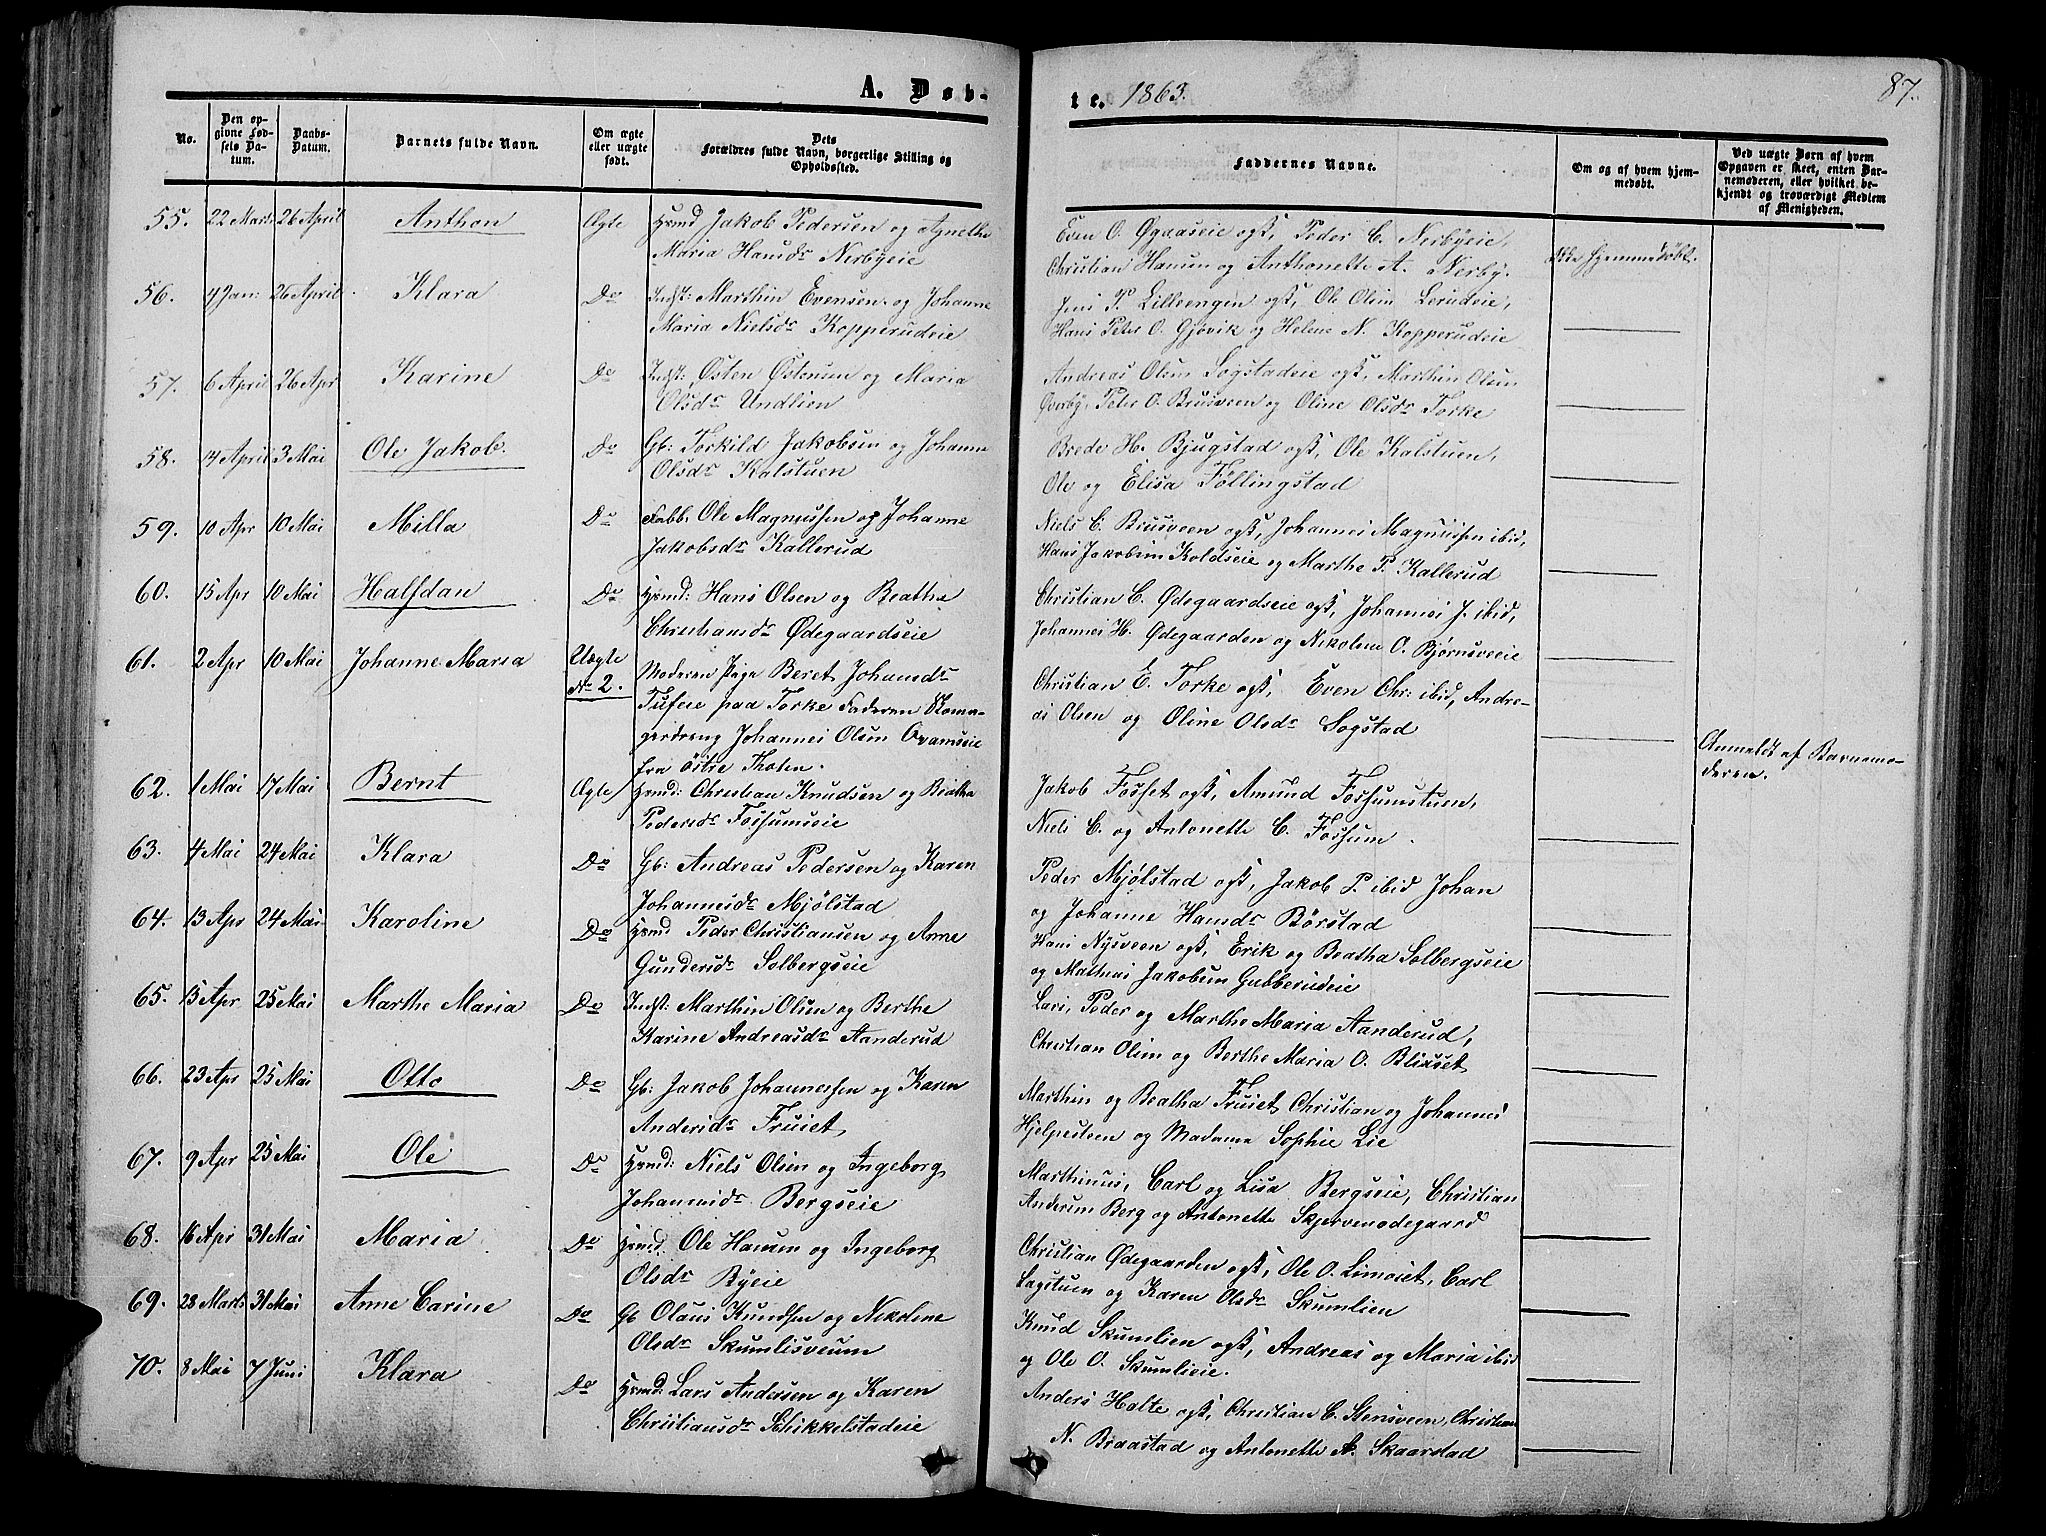 A. Døb-
te. 1863. 87.
No.
Den op-
givne Fød-
sels Da-
tum.
Daabs-
Datum.
Barnets fulde Navn.
Om ægte
eller uægte
født.
Dets
Forældres fulde Navn, borgerlige Stilling og
Opholdssted.
Faddernes Navne.
Om og af hvem hjem-
medøbt.
Ved uægte Børn af hvem
Opgaven er skeet, enten Bar-
nemoderen, eller hvilket be-
kjendt og troværdigt Medlem
af Menigheden.
55. 22 Marts 26 April Anthon Ægte Hrmd Jakob Pedersen og Agnethe
Maria Hansdr Nerbyeie
Even O. Øgaaseie ogs, Peder C. Nerbyeie,
Christian Hansen og Anthonette A. Nerby.
Ikke hjemmedøbt.
56. 4 Jan: 26 April Klara Do Indst: Marthin Evensen og Johanne
Maria Nielsdr Kopperudeie
Jens P. Lilleengen ogs, Ole Olsen Lerudeie,
Hans Peter O. Gjøvik og Helene N. Kopperudeie
57. 6 April 26 Apr Karine Do Indst: Østen Østensen og Maria
Olsdr Undlien
Andreas Olsen Sogstadeie ogs, Marthin Olsen
Øverby, Peter O. Brusveen og Oline Olsdr Torke
58. 14 April 3 Mai Ole Jakob. Do Gb: Torkild Jakobsen og Johanne
Olsdr Kalstuen
Brede H. Bjugstad ogs, Ole Kalstuen,
Ole og Elisa Føllingstad
59. 10 Apr 10 Mai Milla Do Fabb. Ole Magnussen og Johanne
Jakobsdr Kallerud
Niels C. Brusveen ogs, Johannes Magnussen ibid,
Hans Jakobsen Koldseie og Marthe P. Kallerud
60. 15 Apr 10 Mai Halfdan Do Hrmd: Hans Olsen og Beatha
Christiansdr Ødegaardseie
Christian C. Ødegaardseie ogs, Johannes J. ibid,
Johannes H. Ødegaarden og Nikoline O. Bjørnsveeie
61. 2 Apr 10 Mai Johanne Maria Uægte
No 2.
Moderen Pige Beret Johansdr
Tufeie paa Torke Faderen Skoma-
gerdreng Johannes Olsen Qvamseie
fra Østre Thoten.
Christian E. Torke ogs, Even Chr: ibid, Andre-
as Olsen og Oline Olsdr Sogstad
Anmeldt af Barnemo-
deren.
62. 1 Mai 17 Mai Bernt Ægte Hrmd: Christian Knudsen og Beatha
Pedersdr Fossumseie
Jakob Fosset ogs, Amund Fossumstuen,
Niels C. og Antonette C. Fossum.
63. 4 Mai 24 Mai Klara Do Gb: Andreas Pedersen og Karen
Johannesdr Mjølstad
Peder Mjølstad ogs, Jakob P. ibid Johan
og Johanne Hansdr Børstad
64. 13 Apr 24 Mai Karoline Do Hrmd Peder Christiansen og Anne
Gundersdr Solbergseie
Hans Nysveen ogs, Erik og Beatha Solbergseie
og Mathias Jakobsen Gubberudeie
65. 15 Apr 25 Mai Marthe Maria Do Indst: Marthin Olsen og Berthe
Karine Andreasdr Aanderud
Lars, Peder og Marthe Maria Aanderud,
Christian Olsen og Berthe Maria O. Blisset
66. 23 Apr 25 Mai Otto Do Gb: Jakob Johannessen og Karen
Andersdr Fruset
Marthin og Beatha Fruset Christian og Johannes
Hjelpesteen og Madame Sophie Lie
67. 9 Apr 25 Mai Ole Do Hrmd: Niels Olsen og Ingeborg
Johannesdr Bergseie
Marthinus, Carl og Lisa Bergseie, Christian
Andersen Berg og Antonette Skjervenødegaard
68. 16 Apr 31 Mai Maria Do Hrmd Ole Hansen og Ingeborg
Olsdr Byeie
Christian Ødegaarden ogs, Ole O. Limoiet, Carl
Sagstuen og Karen Olsdr Skumlien
69. 28 Marts 31 Mai Anne Carine Do Gb Olaus Knudsen og Nikoline
Olsdr Skumlisveum
Knud Skumlien ogs, Andreas og Maria ibid
og Ole O. Skumlieie.
70. 8 Mai 7 Juni Klara Do Hrmd: Lars Andersen og Karen
Christiansdr Schikkelstadeie
Anders Halte ogs, Christian C. Stensveen, Christian
N. Braastad og Antonette A. Skaarstad